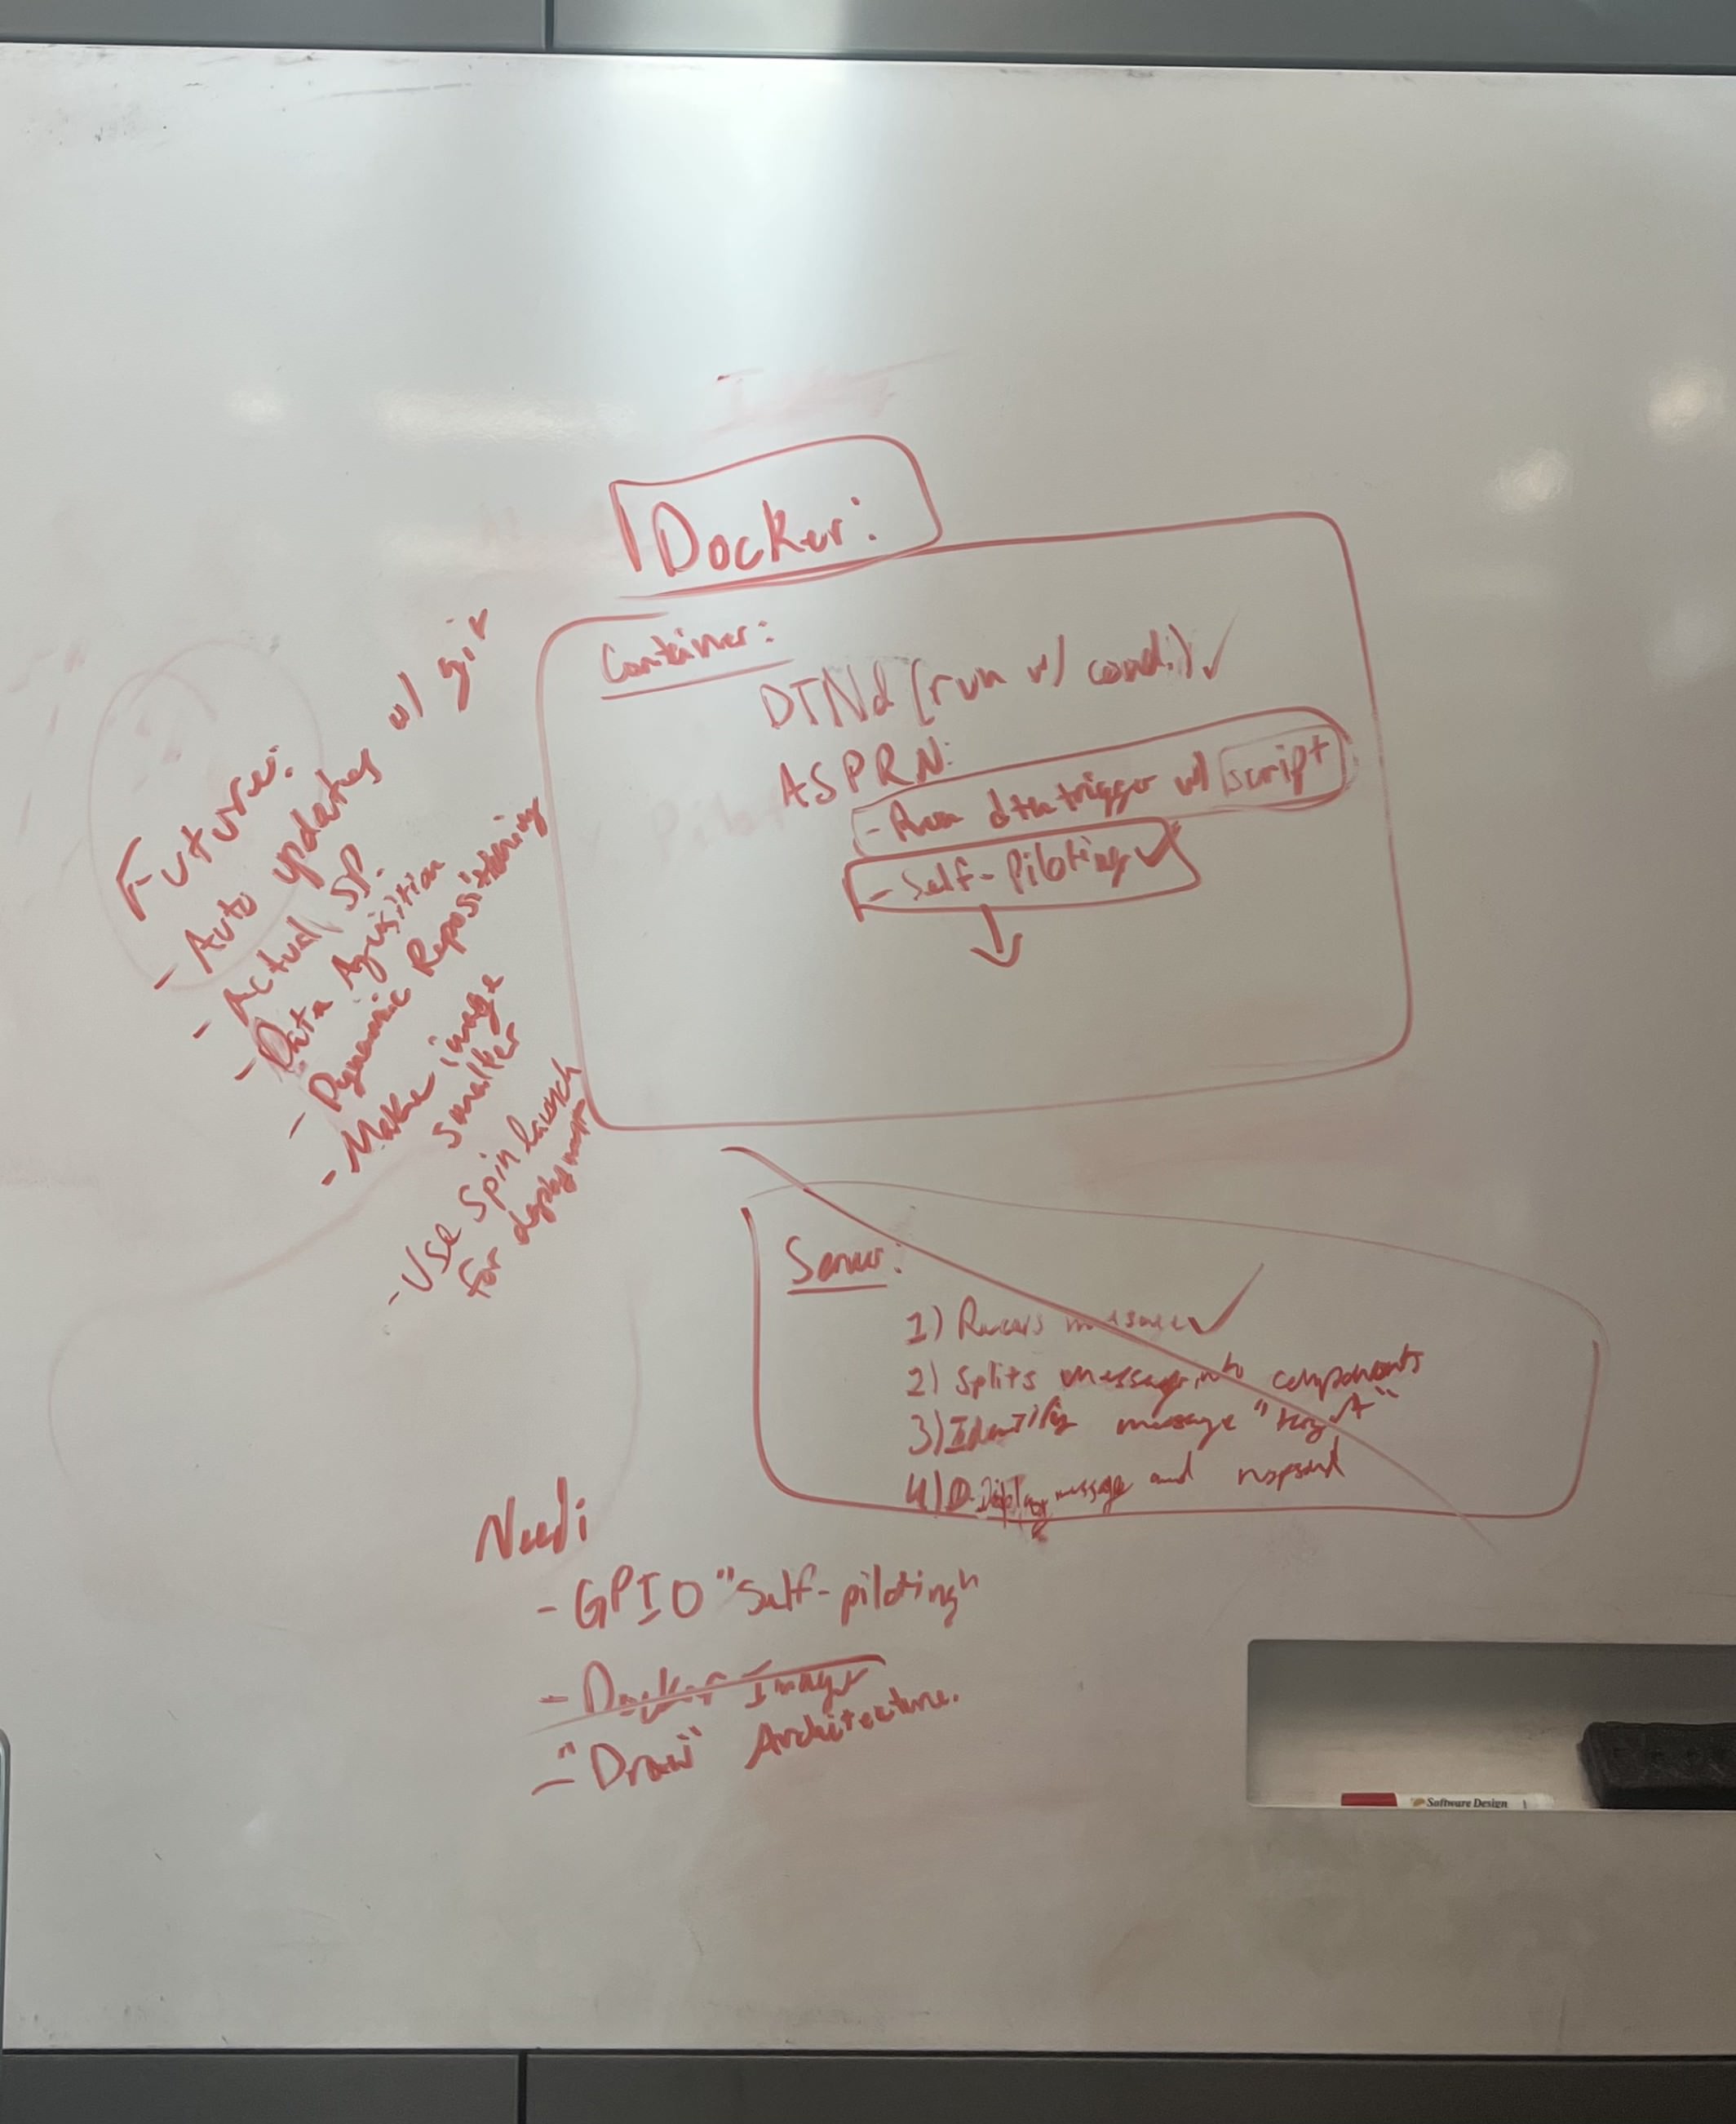 Docker:
Container:
DTNd (run w/ cond.) ✓
ASPRN:
- Run dtntrigger w/ script
- Self-Piloting ✓
Future:
- Auto updates w/ git
- Actual SP.
- Data Aquisition
- Dynamic Repositioning
- Make image
smaller
- Use Spin launch
for deployment
Server:
1) message ✓
2) Splits message into components
3) Identify message "target"
4) Display message and respond
Need:
- GPIO "Self-piloting"
- Docker Image
- "Draw" Architecture.
Software Design